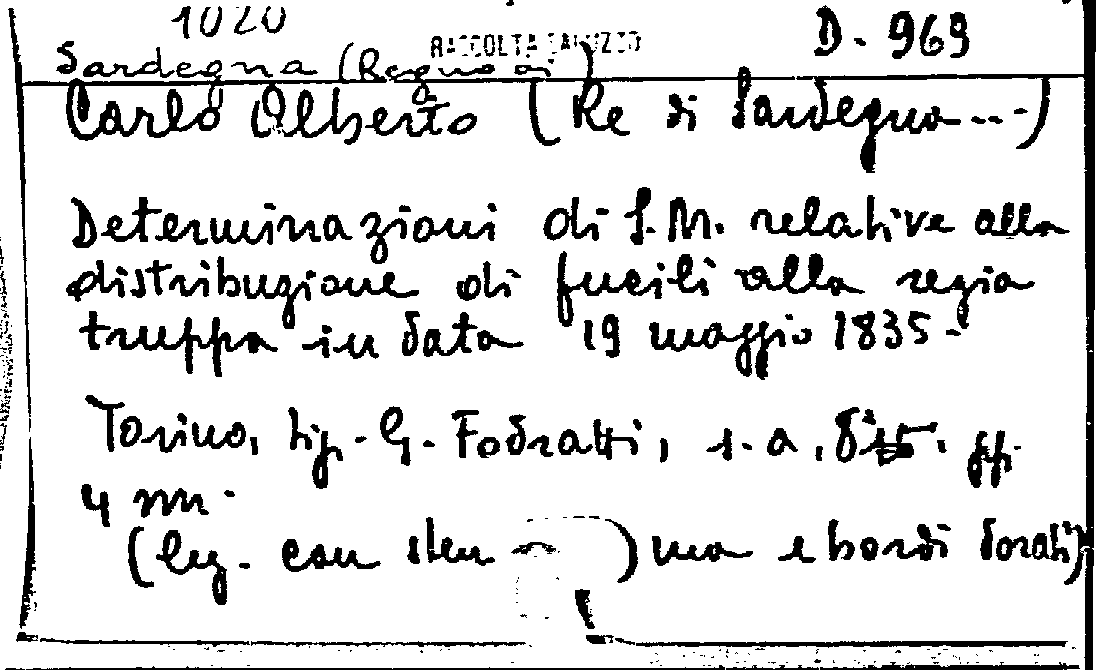 1020
RACCOLTA SALUZZO
D. 969
Sardegna (Regno di)
Carlo Alberto (Re di Sardegna...)
Determinazioni di S.M. relative alla
distribuzione di fucili alla regia
truppa in data 19 maggio 1835.
Torino, tip. G. Fodratti, s.a., 8°. pp.
4 nn.
(leg. con stemma e bordi dorati)